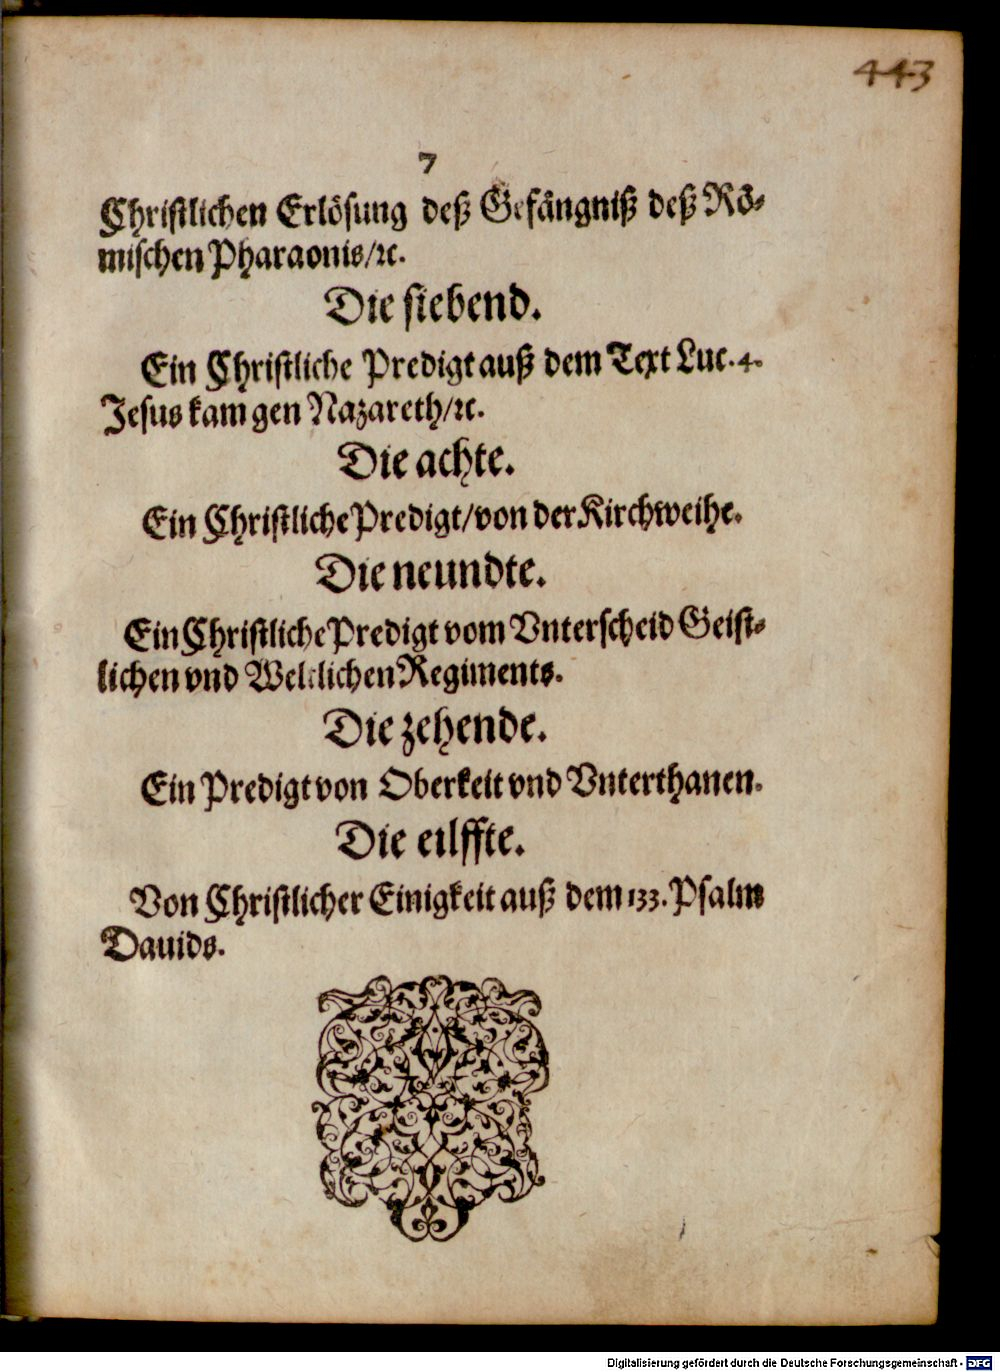 443
7
Chriſtlichen Erlöſung deß Gefängniß deß Rö⸗
miſchen Pharaonis/ꝛc.
Die ſiebend.
Ein Chriſtliche Predigt auß dem Text Luc. 4.
Jeſus kam gen Nazareth/ꝛc.
Die achte.
Ein Chriſtliche Predigt/von der Kirchweihe.
Die neundte.
Ein Chriſtliche Predigt vom Vnterſcheid Geiſt⸗
lichen vnd Weltlichen Regiments.
Die zehende.
Ein Predigt von Oberkeit vnd Vnterthanen.
Die eilffte.
Von Chriſtlicher Einigkeit auß dem 133. Pſalm
Dauids.
Digitalisierung gefördert durch die Deutsche Forschungsgemeinschaft - DFG